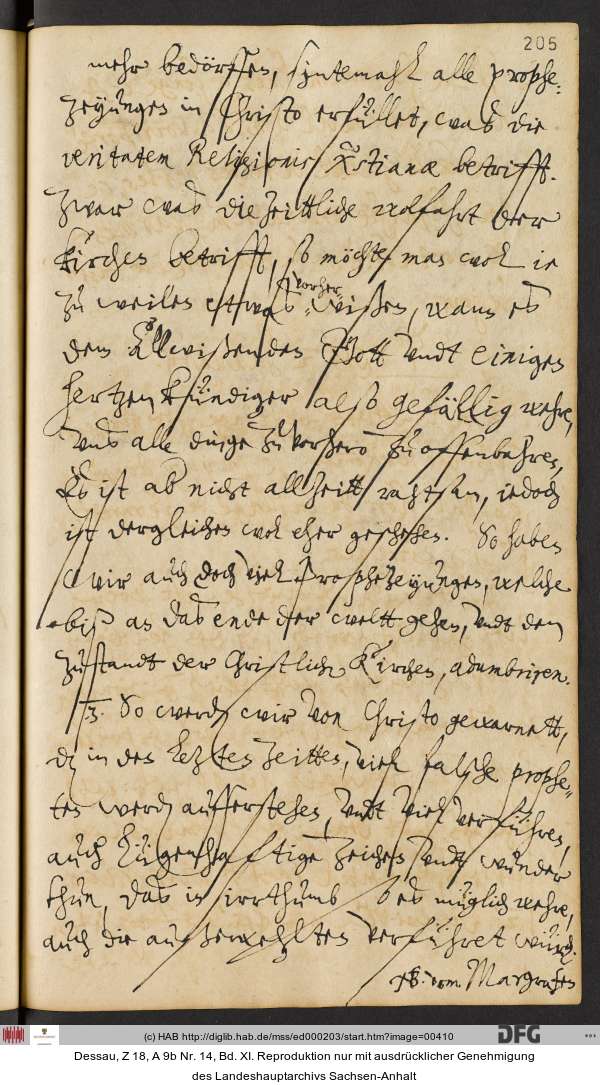 205
mehr bedörffen, sintemahl alle prophe-
zeyungen in Christo erfüllet, was die
veritatem Religionis Xstianæ betrifft.
Zwar was die zeittliche wolfahrt der
kirchen betrifft, so möchte man wol ie
zu weilen etwas vorher wißen, wann es
dem Allwißenden Gott undt einigen
hertzenkündiger also gefällig wehre,
uns alle dinge zuvorhero zu offenbahren,
Es ist ab nicht allzeitt rahtsam, iedoch
ist dergleichen wol eher geschehen. So haben
wir auch doch viel Prophezeyungen, welche
biß an das ende der weltt gehen, undt den
zustandt der Christlichen Kirchen, adumbriren.
3. So werden wir von Christo gewarnett,
dz in den letzten zeitten, viel falsche prophe-
ten werden aufferstehen, undt viel verführen,
auch lügenhafftige zeichen, undt wunder
thun, das in irrthumb so es müglich wehre,
auch die außerwehlten verführet würden.
NB. vom Margrafen
(c) HAB http://diglib.hab.de/mss/ed000203/start.htm?image=00410
DFG
Dessau, Z 18, A 9b Nr. 14, Bd. XI. Reproduktion nur mit ausdrücklicher Genehmigung
des Landeshauptarchivs Sachsen-Anhalt